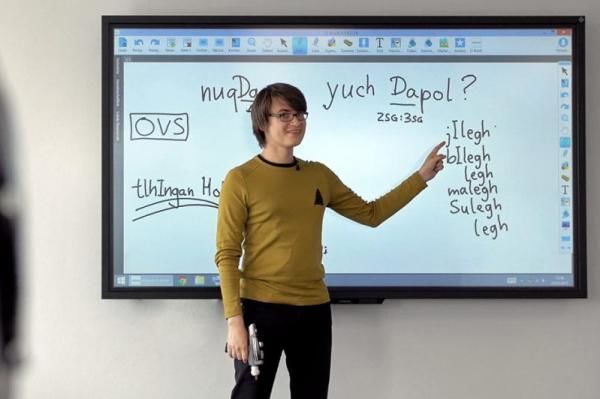 nuqDa yuch Dapol?
2SG:3SG
OVS
jIlegh
bIlegh
legh
tlhIngan Ho
malegh
Sulegh
legh